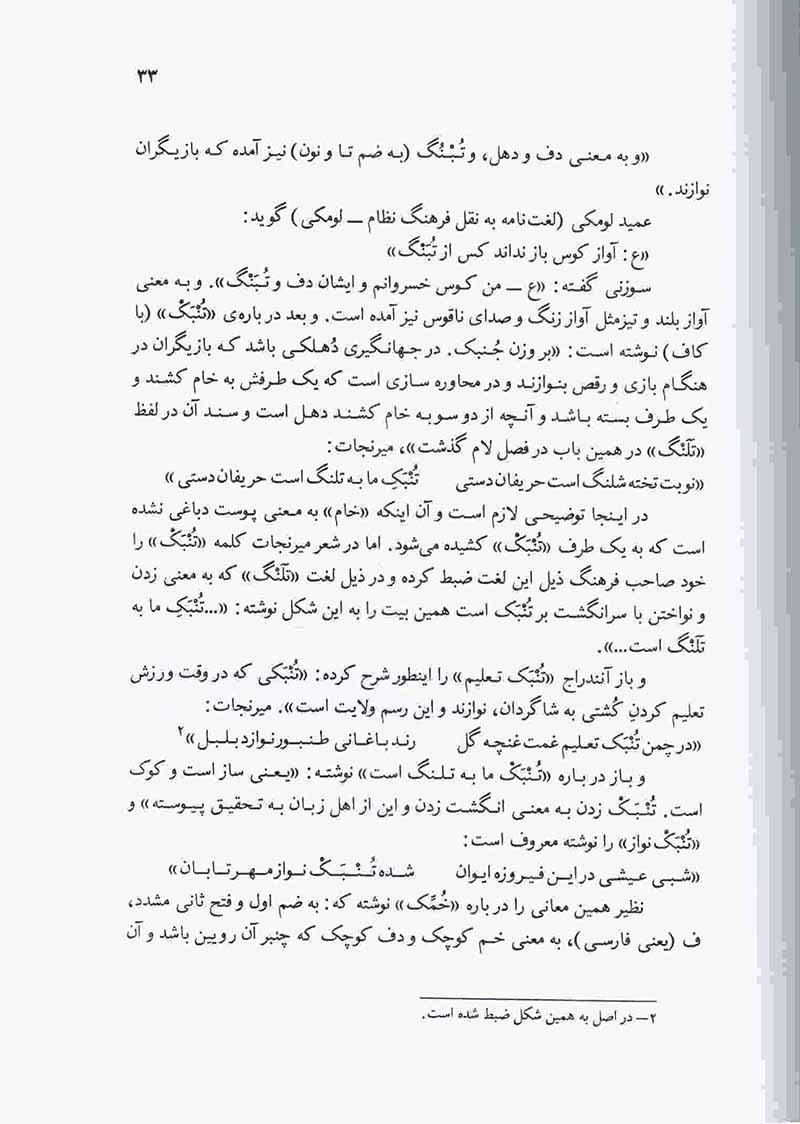 ۳۳
«و به معنی دف و دهل، و تُبْنُگ (به ضم تا و نون) نیز آمده که بازیگران
نوازند.»
عمید لومکی (لغت‌نامه به نقل فرهنگ نظام — لومکی) گوید:
«ع: آواز کوس باز نداند کس از تُبَنْگ»
سوزنی گفته: «ع — من کوس خسروانم و ایشان دف و تُبَنْگ». و به معنی
آواز بلند و تیزمثل آواز زنگ و صدای ناقوس نیز آمده است. و بعد در باره‌ی «تُنْبَکْ» (با
کاف) نوشته است: «بر وزن جُنبک. در جهانگیری دُهلکی باشد که بازیگران در
هنگام بازی و رقص بنوازند و در محاوره سازی است که یک طرفش به خام کشند و
یک طرف بسته باشد و آنچه از دو سو به خام کشند دهل است و سند آن در لفظ
«تَلَنْگ» در همین باب در فصل لام گذشت»، میرنجات:
«نوبت تخته شلنگ است حریفان دستی تُنْبَکِ ما به تلنگ است حریفان دستی»
در اینجا توضیحی لازم است و آن اینکه «خام» به معنی پوست دباغی نشده
است که به یک طرف «تُنْبَکْ» کشیده می‌شود. اما در شعر میرنجات کلمه «تُنْبَکْ» را
خود صاحب فرهنگ ذیل این لغت ضبط کرده و در ذیل لغت «تَلَنْگ» که به معنی زدن
و نواختن با سرانگشت بر تُنْبَک است همین بیت را به این شکل نوشته: «...تُنْبَکِ ما به
تَلَنْگ است...».
و باز آنندراج «تُنْبَک تعلیم» را اینطور شرح کرده: «تُنْبَکی که در وقت ورزش
تعلیم کردنِ کُشتی به شاگردان، نوازند و این رسم ولایت است». میرنجات:
«در چمن تُنْبَک تعلیم غمت غنچه گل رند باغانی طنبور نوازد بلبل»۲
و باز در باره «تُنْبَکْ ما به تلنگ است» نوشته: «یعنی ساز است و کوک
است. تُنْبَکْ زدن به معنی انگشت زدن و این از اهل زبان به تحقیق پیوسته» و
«تُنْبَکْ نواز» را نوشته معروف است:
«شبی عیشی در این فیروزه ایوان شده تُنْبَکْ نواز مهر تابان»
نظیر همین معانی را در باره «خُمَّک» نوشته که: به ضم اول و فتح ثانی مشدد،
ف (یعنی فارسی)، به معنی خم کوچک و دف کوچک که چنبر آن رویین باشد و آن
۲— در اصل به همین شکل ضبط شده است.